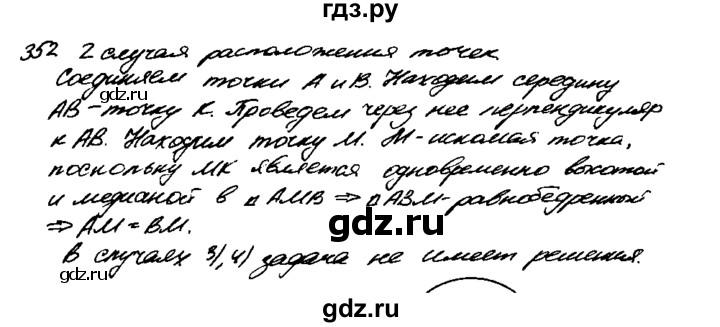 гдз.ру
352 2 случая расположения точек.
Соединяем точки А и В. Находим середину
АВ - точку К. Проведем через нее перпендикуляр
к АВ. Находим точку М. М - искомая точка,
поскольку МК является одновременно высотой
и медианой в △АМВ ⇒ △АЗМ - равнобедренный
⇒ АМ = ВМ.
В случаях 3), 4) задача не имеет решения.
gdz.ru
gdz.ru